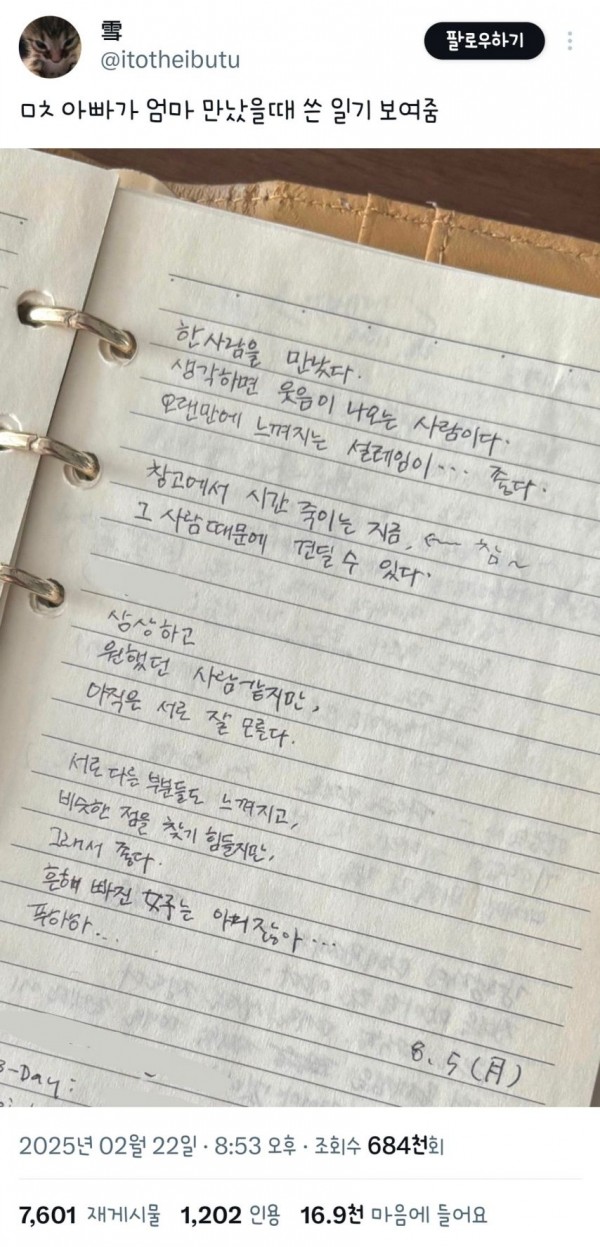 雪
팔로우하기
@itotheibutu
ㅁㅊ 아빠가 엄마 만났을때 쓴 일기 보여줌
한사람을 만났다.
생각하면 웃음이 나오는 사람이다.
오랜만에 느껴지는 설레임이··· 좋다.
창고에서 시간 죽이는 지금, ← 참~
그 사람때문에 견딜 수 있다.
상상하고
원했던 사람같지만,
아직은 서로 잘 모른다.
서로 다른 부분들도 느껴지고,
비슷한 점을 찾기 힘들지만,
그래서 좋다.
흔해 빠진 는 아니잖아···
푸하하···
8. 5 (月)
-Day:
2025년 02월 22일 · 8:53 오후 · 조회수 684천회
7,601 재게시물 1,202 인용 16.9천 마음에 들어요